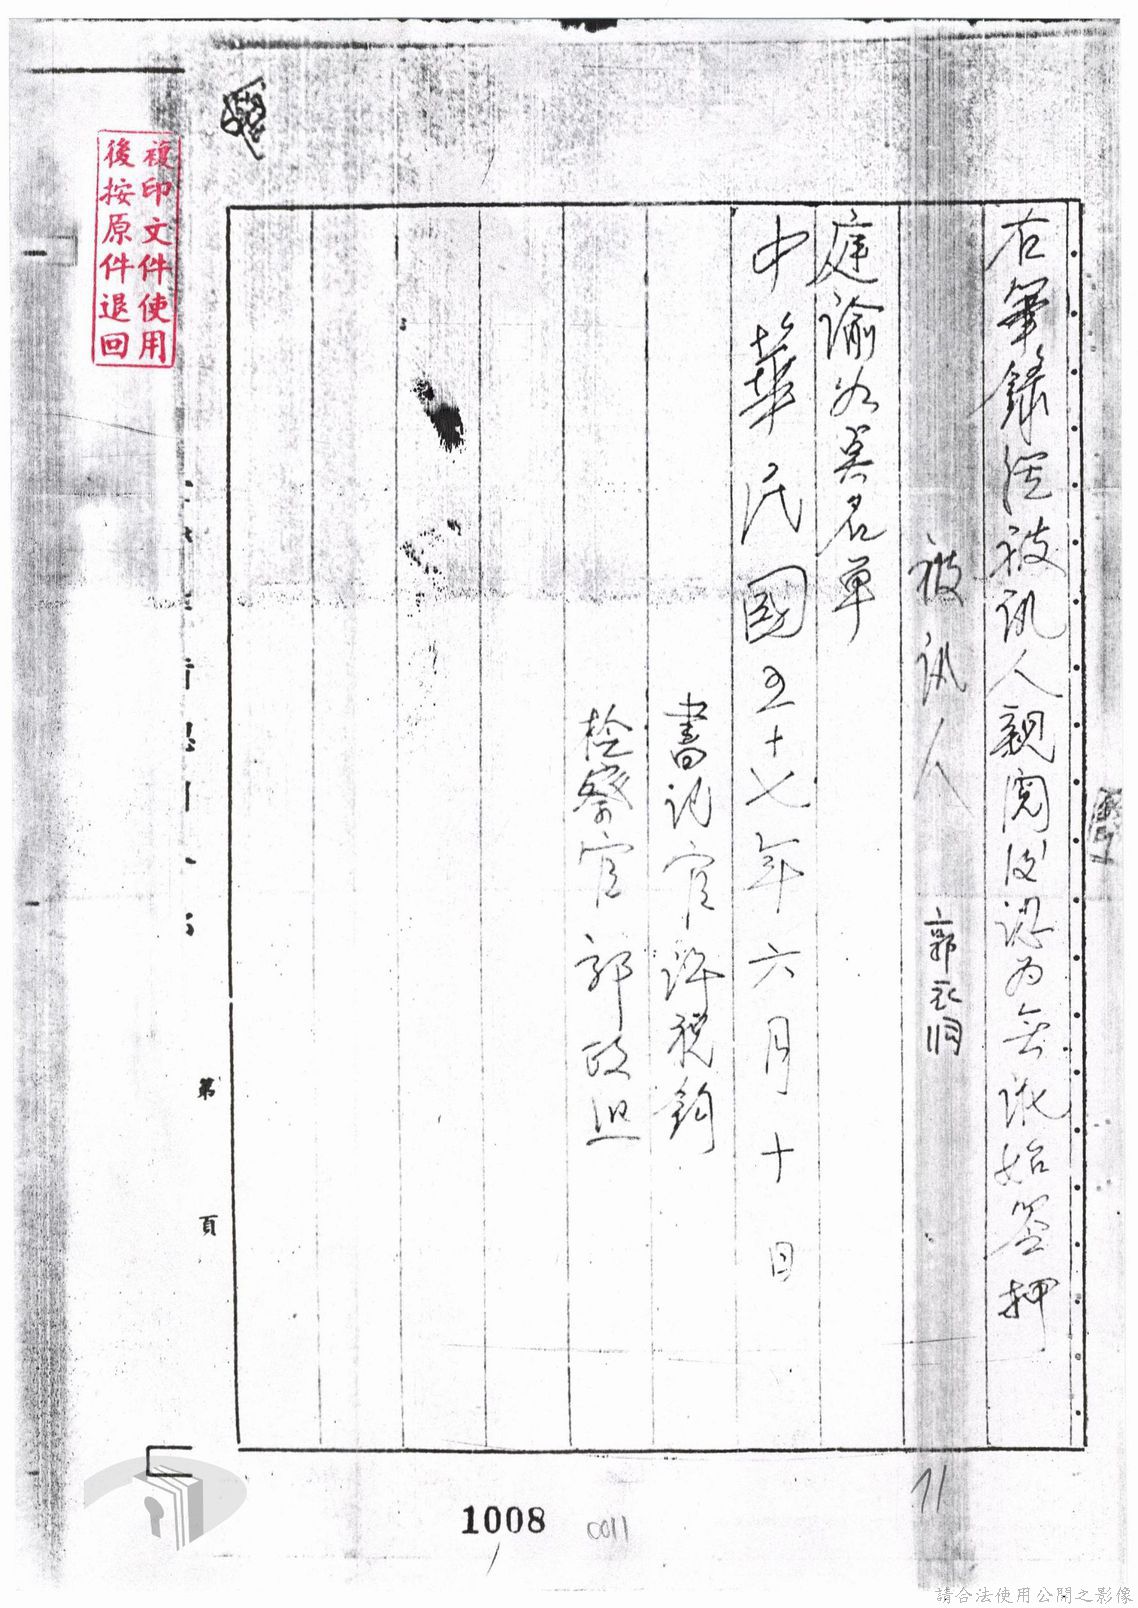 右筆錄經被訊人親閱後認為無訛始簽押
被訊人 郭永洞
庭諭如莫名單
中華民國五十七年六月十日
書記官許稅鈞
檢察官郭政
複印文件使用
後按原件退回
第 頁
11
1008
0011
請合法使用公開之影像